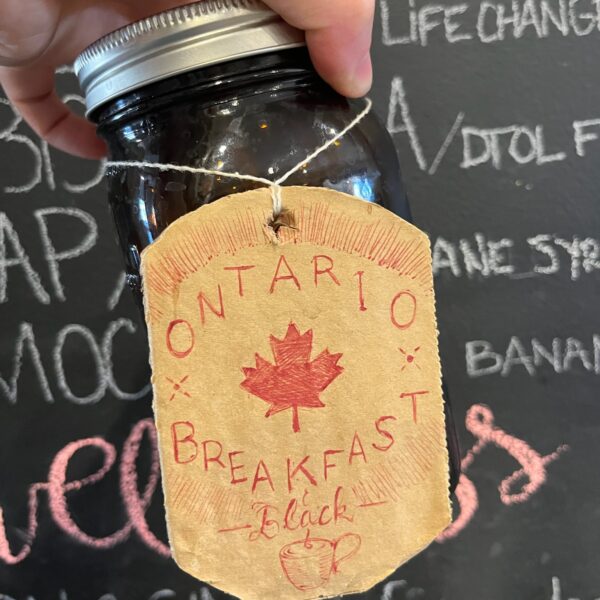 LIFE CHANG
A/DTOL F
AP
ANE SYR
MOC
BANAN
ONTARIO
BREAKFAST
Black